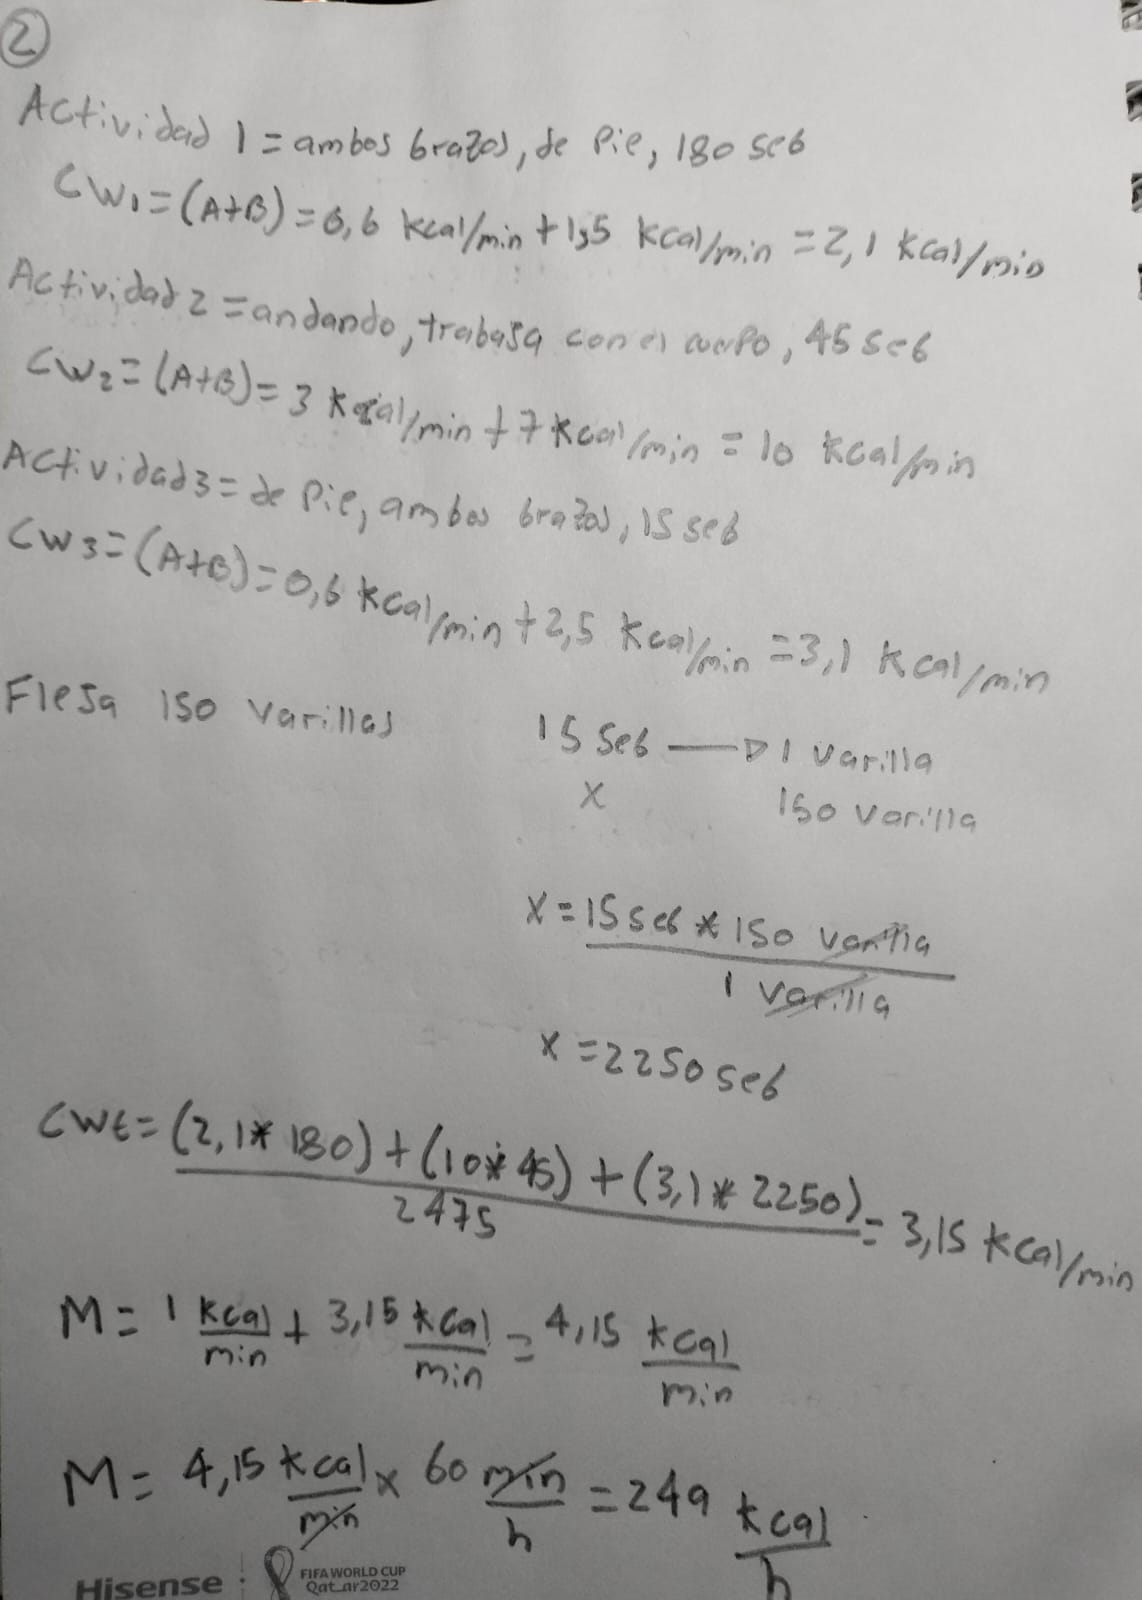 2
Actividad 1 = ambos brazos, de Pie, 180 seg
CW1=(A+B)=0,6 kcal/min + 1,5 kcal/min = 2,1 kcal/min
Actividad 2 = andando, trabaja con el cuerpo, 45 seg
CW2=(A+B)= 3 kcal/min + 7 kcal/min = 10 kcal/min
Actividad 3 = de Pie, ambos brazos, 15 seg
CW3=(A+B)=0,6 kcal/min + 2,5 kcal/min = 3,1 kcal/min
Fleja 150 varillas
15 Seg → 1 varilla
x 150 varilla
x = 15 seg * 150 varilla
1 varilla
x = 2250 seg
CWt= (2,1* 180) + (10* 45) + (3,1 * 2250) = 3,15 kcal/min
2475
M = 1 kcal/min + 3,15 kcal/min = 4,15 kcal/min
M = 4,15 kcal/min x 60 min/h = 249 kcal/h
Hisense
FIFA WORLD CUP
Qatar2022